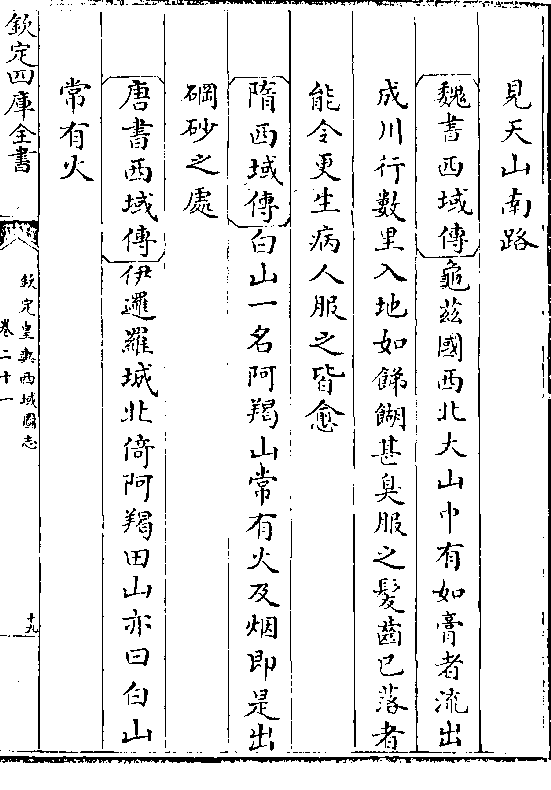 見天山南路
魏書西域傳龜茲國西北大山中有如膏者流出
成川行數里入地如餳餬甚臭服之髮齒已落者
能令更生病人服之皆愈
隋西域傳白山一名阿羯山常有火及烟即是出
硇砂之處
唐書西域傳伊邏羅城北倚阿羯田山亦曰白山
常有火
欽定四庫全書
欽定皇輿西域圖志
卷二十一
十九